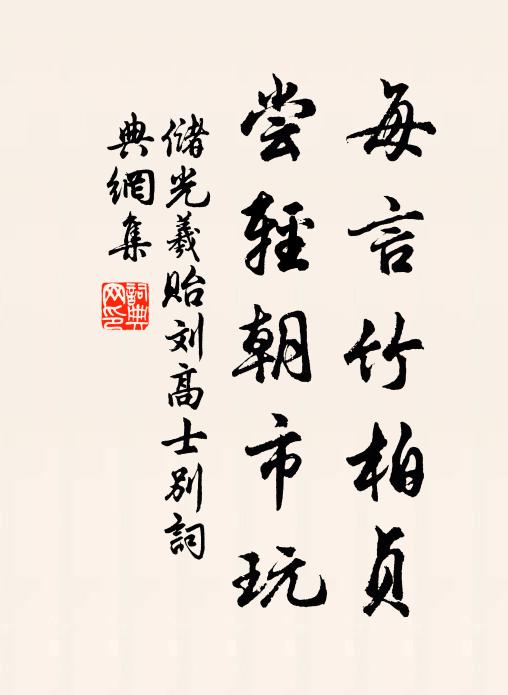 每言竹柏贞
尝輕朝市玩
储光羲贻刘高士别詞
典網集
詞典
网印